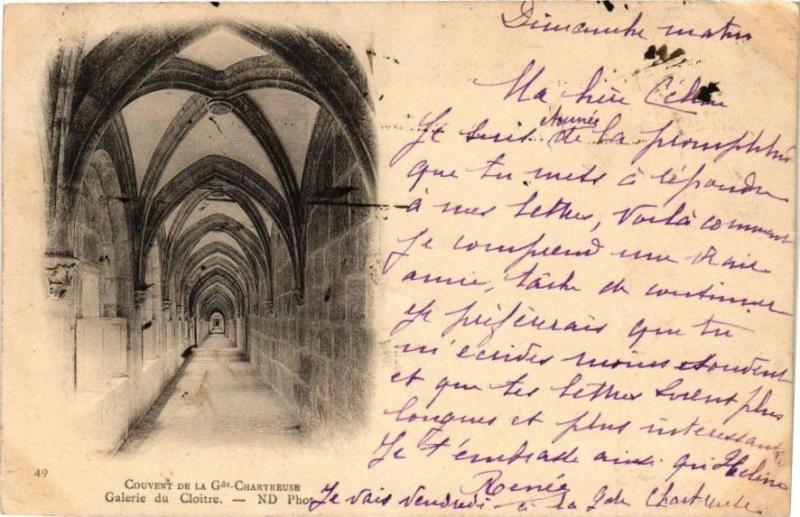 Dimanche matin
Ma chère Céline
Je suis étonnée de la promptitude
que tu mets à répondre
à mes lettres, voilà comment
je comprend une vraie
amie, tâche de continuer
je préférerais que tu
m'écrives moins souvent
et que tes lettres soient plus
longues et plus interessantes
Je t'embrasse ainsi qu'Heline
Renée
Je vais vendredi à la Gde Chartreuse
49
COUVENT DE LA Gde-CHARTREUSE
Galerie du Cloitre. — ND Phot